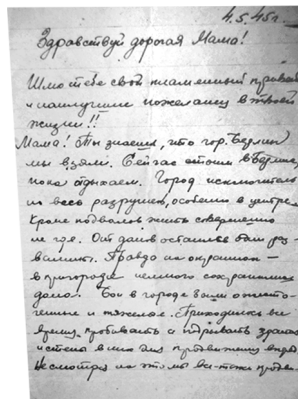 4.5.45г.
Здравствуй дорогая Мама!
Шлю тебе свой пламенный привет
и наилучшие пожелания в твоей
жизни!!
Мама! Ты знаешь, что гор. Берлин
мы взяли. Сейчас стоим в Берлине,
пока отдыхаем. Город исключитель
но весь разрушен, особенно в центре.
Кроме подвалов жить совершенно
не где. От домов остались одни раз
валины. Правда на окраинах
в пригороде немного сохранились
дома. Бои в городе были ожесто-
ченные и тяжелые. Приходилось все
время пробивать и взрывать здания
и стены для продвижения вперед
Несмотря на это мы все-таки